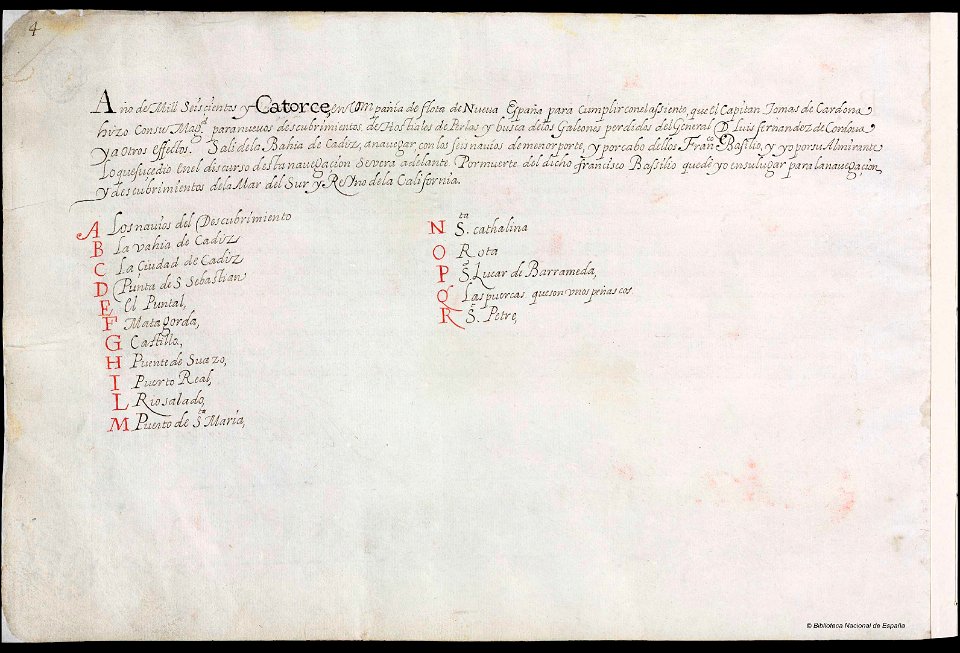 4
Año de Mill Seiscientos y Catorce, en Compañia de flota de Nueva España para cumplir con el assiento, que el Capitan Tomas de Cardona
hizo con su Magd. para nuevos descubrimientos, de Hostiales de Perlas y busca de los Galeones perdidos del General D. Luis fernandez de Cordova
y a otros effectos. Sali de la Bahia de Cadiz, a navegar, con los seis navios de menor porte, y por cabo dellos Franco. Basilio, y yo por su Almirante
Lo que sucedio en el discurso desta navegacion Se vera adelante. Por muerte del dicho francisco Bassilio quede yo en su lugar para la navegacion
y descubrimientos de la Mar del Sur y Reyno de la California.
A Los navios del Descubrimiento
B La vahia de Cadiz
C La Ciudad de Cadiz
D Punta de S Sebastian
E El Puntal,
F Matagorda,
G Castillo,
H Puente de Suazo,
I Puerto Real,
L Rio salado,
M Puerto de Sta Maria,
N Sta. cathalina
O Rota
P S. Lucar de Barrameda,
Q Las puercas que son unos peñascos.
R S. Petre,
© Biblioteca Nacional de España